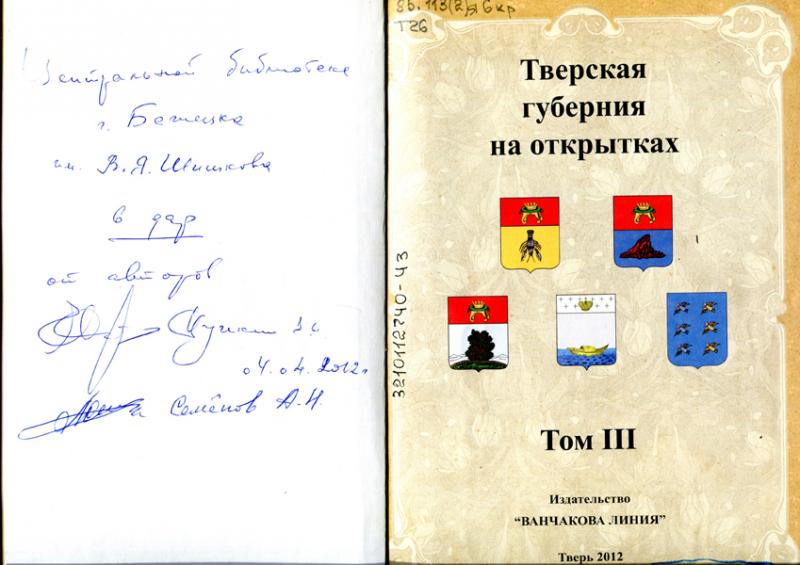 Центральной библиотеке
г. Бежецка
им. В.Я. Шишкова
в дар
от авторов
04.04.2012г
Семёнов А.Н.
Т26
Тверская
губерния
на открытках
3210112740-43
Том III
Издательство
“ВАНЧАКОВА ЛИНИЯ”
Тверь 2012